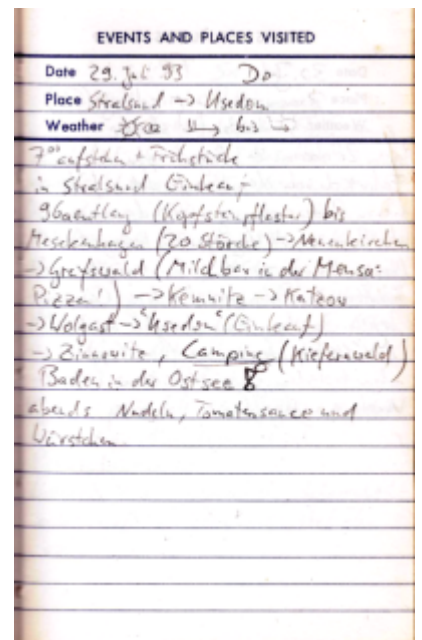 EVENTS AND PLACES VISITED
Date 29. Jul 93 Do
Place Stralsund -> Usedom
Weather bis
7⁰⁰ aufstehen + Frühstück
in Stralsund Einkauf
96a entlang (Kopfsteinpflaster) bis
Mesekenhagen (20 Störche) -> Neuenkirchen
-> Greifswald (Milchbar in der Mensa:
Pizza!) -> Kemnitz -> Katzow
-> Wolgast -> "Usedom" (Einkauf)
-> Zinnowitz, Camping (Kiefernwald)
Baden in der Ostsee
abends Nudeln, Tomatensauce und
Würstchen